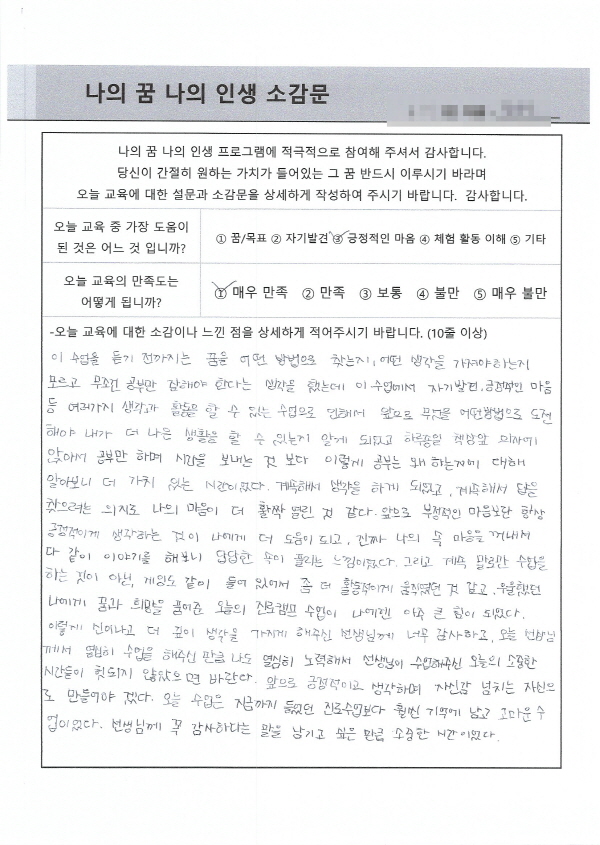 나의 꿈 나의 인생 소감문
나의 꿈 나의 인생 프로그램에 적극적으로 참여해 주셔서 감사합니다.
당신이 간절히 원하는 가치가 들어있는 그 꿈 반드시 이루시기 바라며
오늘 교육에 대한 설문과 소감문을 상세하게 작성하여 주시기 바랍니다. 감사합니다.
오늘 교육 중 가장 도움이
된 것은 어느 것 입니까?
① 꿈/목표 ② 자기발견 ③ 긍정적인 마음 ④ 체험 활동 이해 ⑤ 기타
오늘 교육의 만족도는
어떻게 됩니까?
① 매우 만족 ② 만족 ③ 보통 ④ 불만 ⑤ 매우 불만
-오늘 교육에 대한 소감이나 느낀 점을 상세하게 적어주시기 바랍니다. (10줄 이상)
이 수업을 듣기 전까지는 꿈을 어떤 방법으로 찾는지, 어떤 생각을 가져야하는지
모르고 무조건 공부만 잘해야 한다는 생각을 했는데 이 수업에서 자기발견, 긍정적인 마음
등 여러가지 생각과 활동을 할 수 있는 수업으로 인해서 앞으로 무엇을 어떤방법으로 도전
해야 내가 더 나은 생활을 할 수 있는지 알게 되었고 하루종일 책상앞 의자에
앉아서 공부만 하며 시간을 보내는 것 보다 이렇게 공부는 왜 하는지에 대해
알아보니 더 가치 있는 시간이었다. 계속해서 생각을 하게 되었고, 계속해서 답을
찾으려는 의지로 나의 마음이 더 활짝 열린 것 같다. 앞으로 부정적인 마음보단 항상
긍정적이게 생각하는 것이 나에게 더 도움이 되고, 진짜 나의 속 마음을 꺼내서
다 같이 이야기를 해보니 답답한 속이 풀리는 느낌이었다. 그리고 계속 말로만 수업을
하는 것이 아닌, 게임도 같이 들어 있어서 좀 더 활동적이게 움직였던 것 같고, 우울했던
나에게 꿈과 희망을 품어준 오늘의 진로캠프 수업이 나에겐 아주 큰 힘이 되었다.
이렇게 신이나고 더 깊이 생각을 가지게 해주신 선생님께 너무 감사하고, 오늘 선생님
께서 열심히 수업을 해주신 만큼 나도 열심히 노력해서 선생님이 수업해주신 오늘의 소중한
시간들이 헛되지 않았으면 바란다. 앞으로 긍정적이고 생각하며 자신감 넘치는 자신으
로 만들어야 겠다. 오늘 수업은 지금까지 들었던 진로수업보다 훨씬 기억에 남고 고마운 수
업이었다. 선생님께 꼭 감사하다는 말을 남기고 싶은 만큼 소중한 시간이었다.